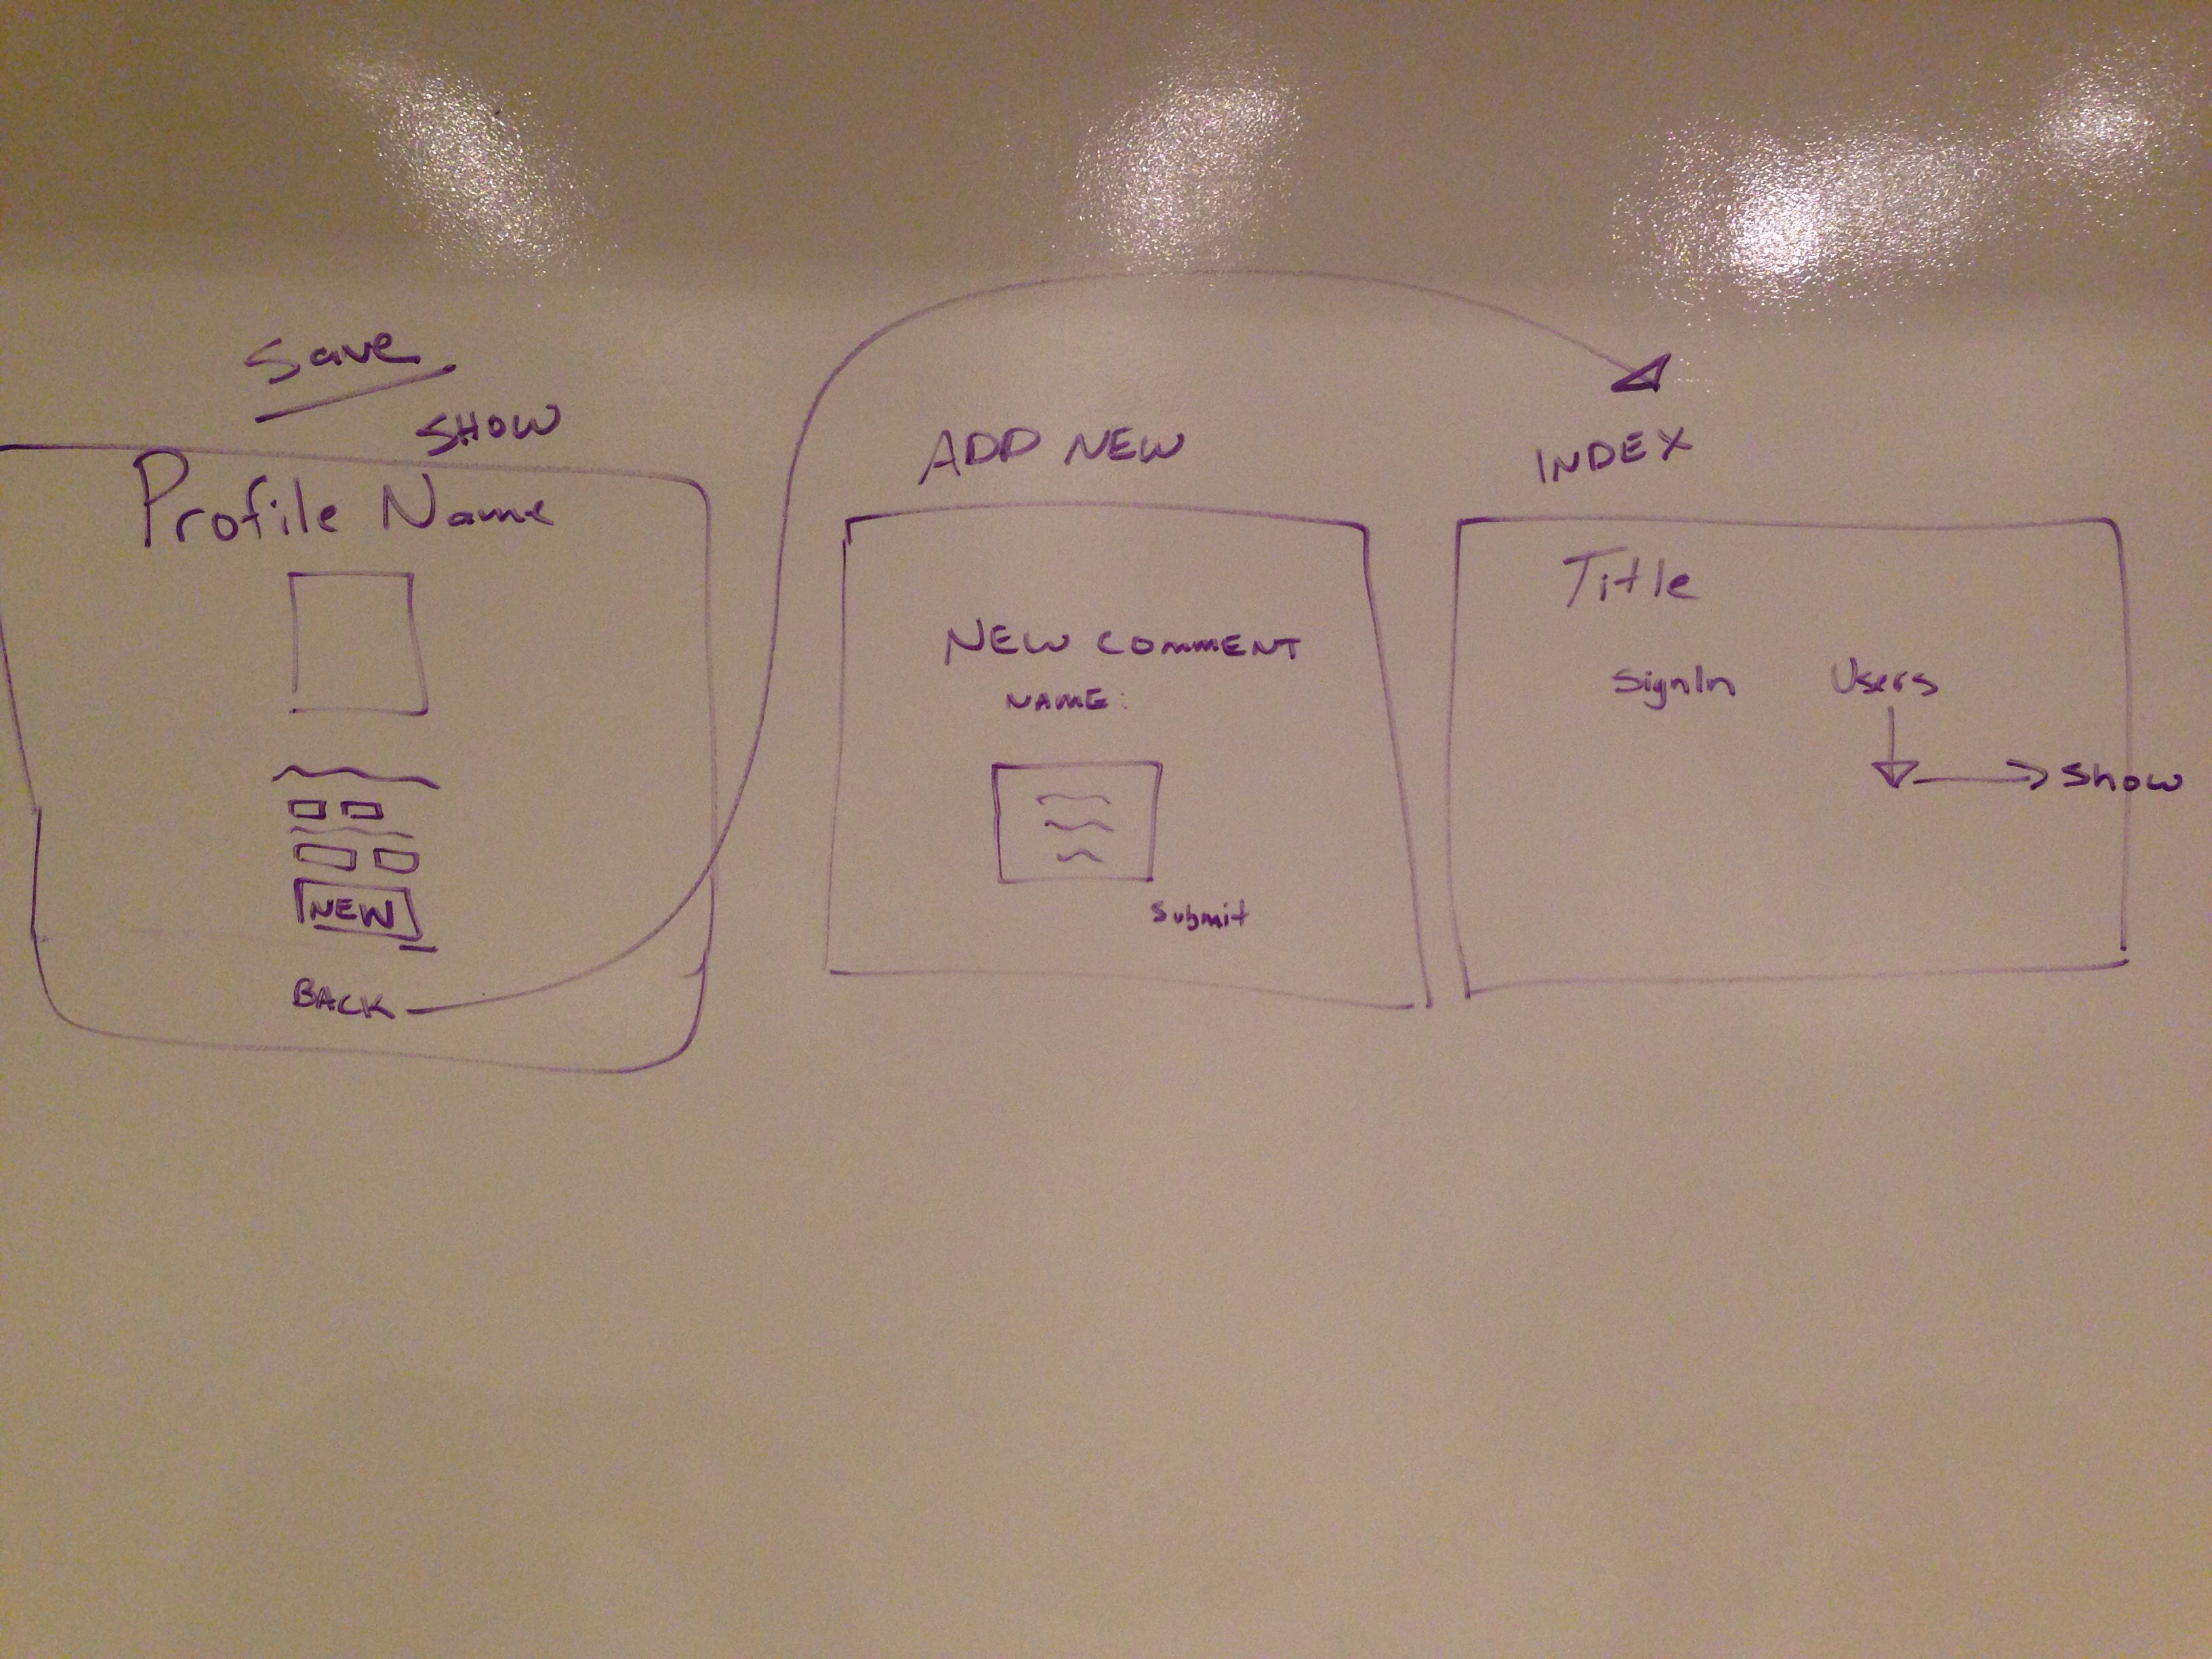 Save
SHOW
Profile Name
NEW
BACK
ADD NEW
NEW COMMENT
NAME:
Submit
INDEX
Title
SignIn Users
Show